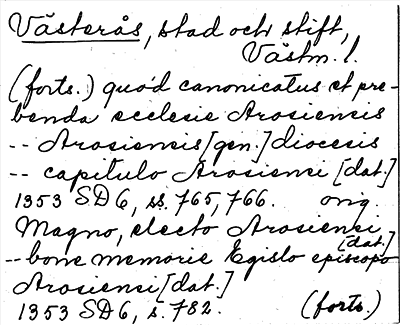 Västerås, stad och stift,
Västm. l.
(forts.) quod canonicatus et pre-
benda ecclesie Arosiensis
-- Arosiensis [gen.] diocesis
-- capitulo Arosiensi [dat.]
1353 SD 6, ss. 765, 766. orig.
Magno, electo Arosiensi
[dat.]
-- bone memorie Egislo episcopo
Arosiensi [dat.]
1353 SD 6, s. 782. (forts.)